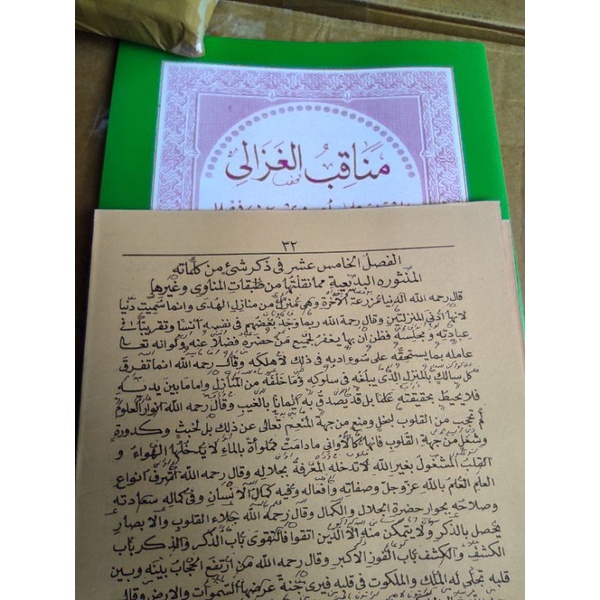 مَنَاقِبُ الغَزَالِى
٣٢
الفصل الخامس عشر فى ذكر شئ من كلماته
المنثوره البديعية مما نقلتها من طبقات المناوى وغيرها
قال رحمه الله الدنيا مزرعة الآخرة وهى منزل من منازل الهدى وانما سميت دنيا
لانها أدنى المنزلتين وقال رحمه الله ربما وجد بعضهم فى نفسه أنسا وتقريبا فى
عبادته ومجلسه فظن ان بها يغفر لجميع من حضره فضلا عنه ولو انه تعالى
عامله بما يستحقه على سوء ادبه فى ذلك لأهلكه وقال رحمه الله انما تفرق
كل سالك بالمنزل الذى يبلغه فى سلوكه وما خلفه من المنازل واما ما بين يديه
فلا يحيط بحقيقته علما بل قد يصدق به ايمانا بالغيب وقال رحمه الله أنوار العلوم
لم تحجب من القلوب لبخل ومنع من جهة المنعم تعالى عن ذلك بل لخبث وكدورة
وشغل من جهة القلوب فانها كالأوانى مادامت مملوأة بالماء لا يدخلها الهواء و
القلب المشغول بغير الله لا تدخله المعرفة بجلاله وقال رحمه الله أشرف أنواع
العلم العلم بالله عز وجل وصفاته وأفعاله وفيه كمال الانسان وفى كماله سعادته
وصلاحه بجوار حضرة الجلال والكمال وقال رحمه الله جلاء القلوب والابصار
يحصل بالذكر ولا يتمكن منه الا الذين اتقوا فالتقوى باب الذكر والذكر باب
الكشف والكشف باب الفوز الأكبر وقال رحمه الله من ارتفع الحجاب بينه وبين
قلبه تجلى له الملك والملكوت فى قلبه فيرى جنة عرضها السموات والارض وقال